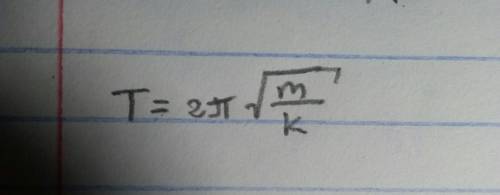 T = 2π √(m/k)